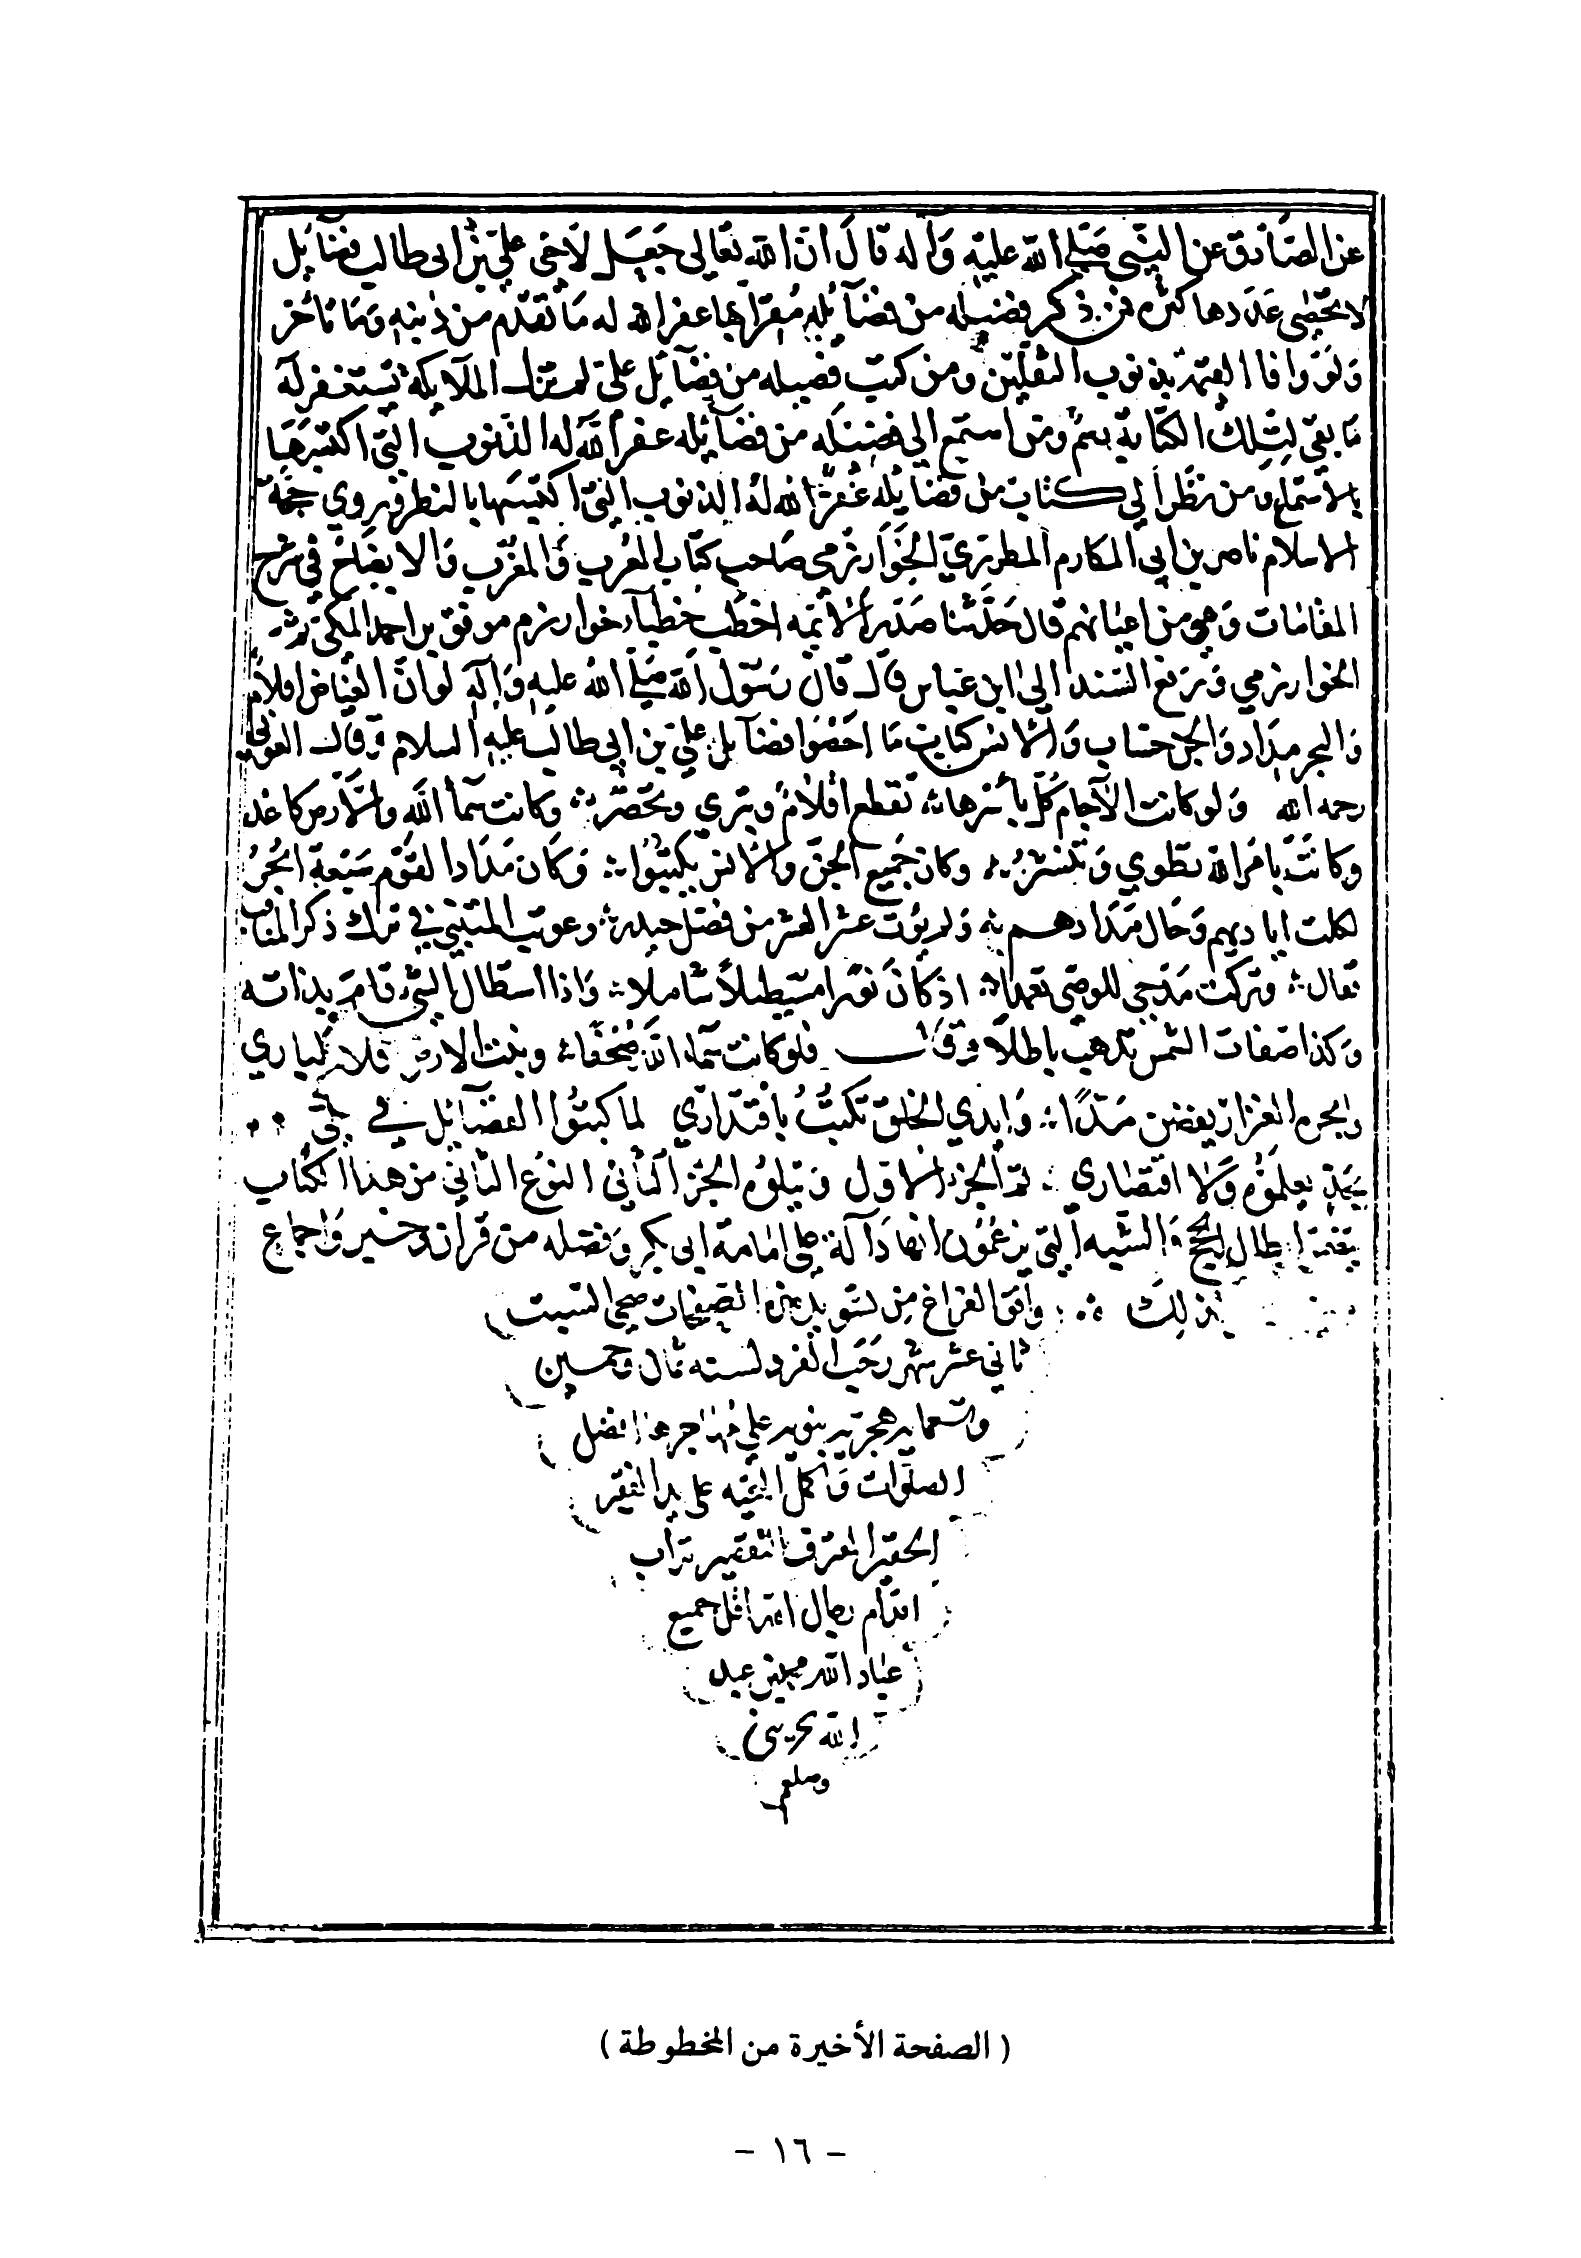 عن الصادق عن النبي صلى الله عليه وآله قال ان الله تعالى جعل لاخي علي بن ابي طالب فضائل
لا يحصى عددها كثرة فمن ذكر فضيله من فضائله مقرا بها غفر الله له ما تقدم من ذنبه وما تأخر
ولو وافا القيمة بذنوب الثقلين ومن كتب فضيله من فضائل علي لم تزل الملائكة تستغفر له
ما بقي لتلك الكتابة رسم ومن استمع الى فضيله من فضائله غفر الله له الذنوب التي اكتسبها
بالاستماع ومن نظر الى كتاب من فضائله غفر الله له الذنوب التي اكتسبها بالنظر وروي حجة
الاسلام ناصر بن ابي المكارم المطرزي الخوارزمي صاحب كتاب المعرب والمغرب والايضاح في شرح
المقامات وهي من اعيانهم قال حدثنا صدر الائمه اخطب خطباء خوارزم موفق بن احمد المكي ثم
الخوارزمي ورفع السند الى ابن عباس قال قال رسول الله صلى الله عليه وآله لو ان الغياض اقلام
والبحر مداد والجن حساب والانس كتاب ما احصوا فضائل علي بن ابي طالب عليه السلام وقال العوني
رحمه الله ولو كانت الآجام كلا بأسرها تقطع اقلام وتبري وتحضر وكانت سماء الله والارض كاغد
وكانت بامر الله تطوي وتنشر وكان جميع الجن والانس يكتبوا وكان مدادا لقوم سبعة ابحر
لكلت اياديهم وحال مدادهم ولم يؤت عشر العشر من فضل حيدر وعوتب المتنبي في ترك ذكر المناقب
فقال وتركت مدحي للوصي تعمدا اذ كان نورا مستطيلا شاملا واذا استطال الشيء قام بذاته
وكذا صفات الشمس تذهب باطلا وقال فلو كانت سماء الله صحفا ونبت الارض قلا كباري
وابحره الغزار يفضن مدا وايدي الخلق تكتب باقتداري لما كتبوا الفضائل في علي
بعلمه ولا اقتصاري تم الجزء الاول ويتلوه الجزء الثاني النوع الثاني من هذا الكتاب
ابطال الحجج والشبه التي يزعمون انها دآلة على امامة ابي بكر وفضله من قران وخبر واجماع
ذلك واتفق الفراغ من تسويد هذه الصفحات ضحى السبت
ثاني عشر شهر رجب الفرد لسنه ثمان وخمسين
وتسعمايه هجريه نبويه على مهاجرها افضل
الصلوات واكمل التحيه على يد الفقير
الحقير المعترف بالتقصير تراب
اقدام رجال الله اقل جميع
عباد الله عبد
الله
وصلم
( الصفحة الأخيرة من المخطوطة )
- ١٦ -